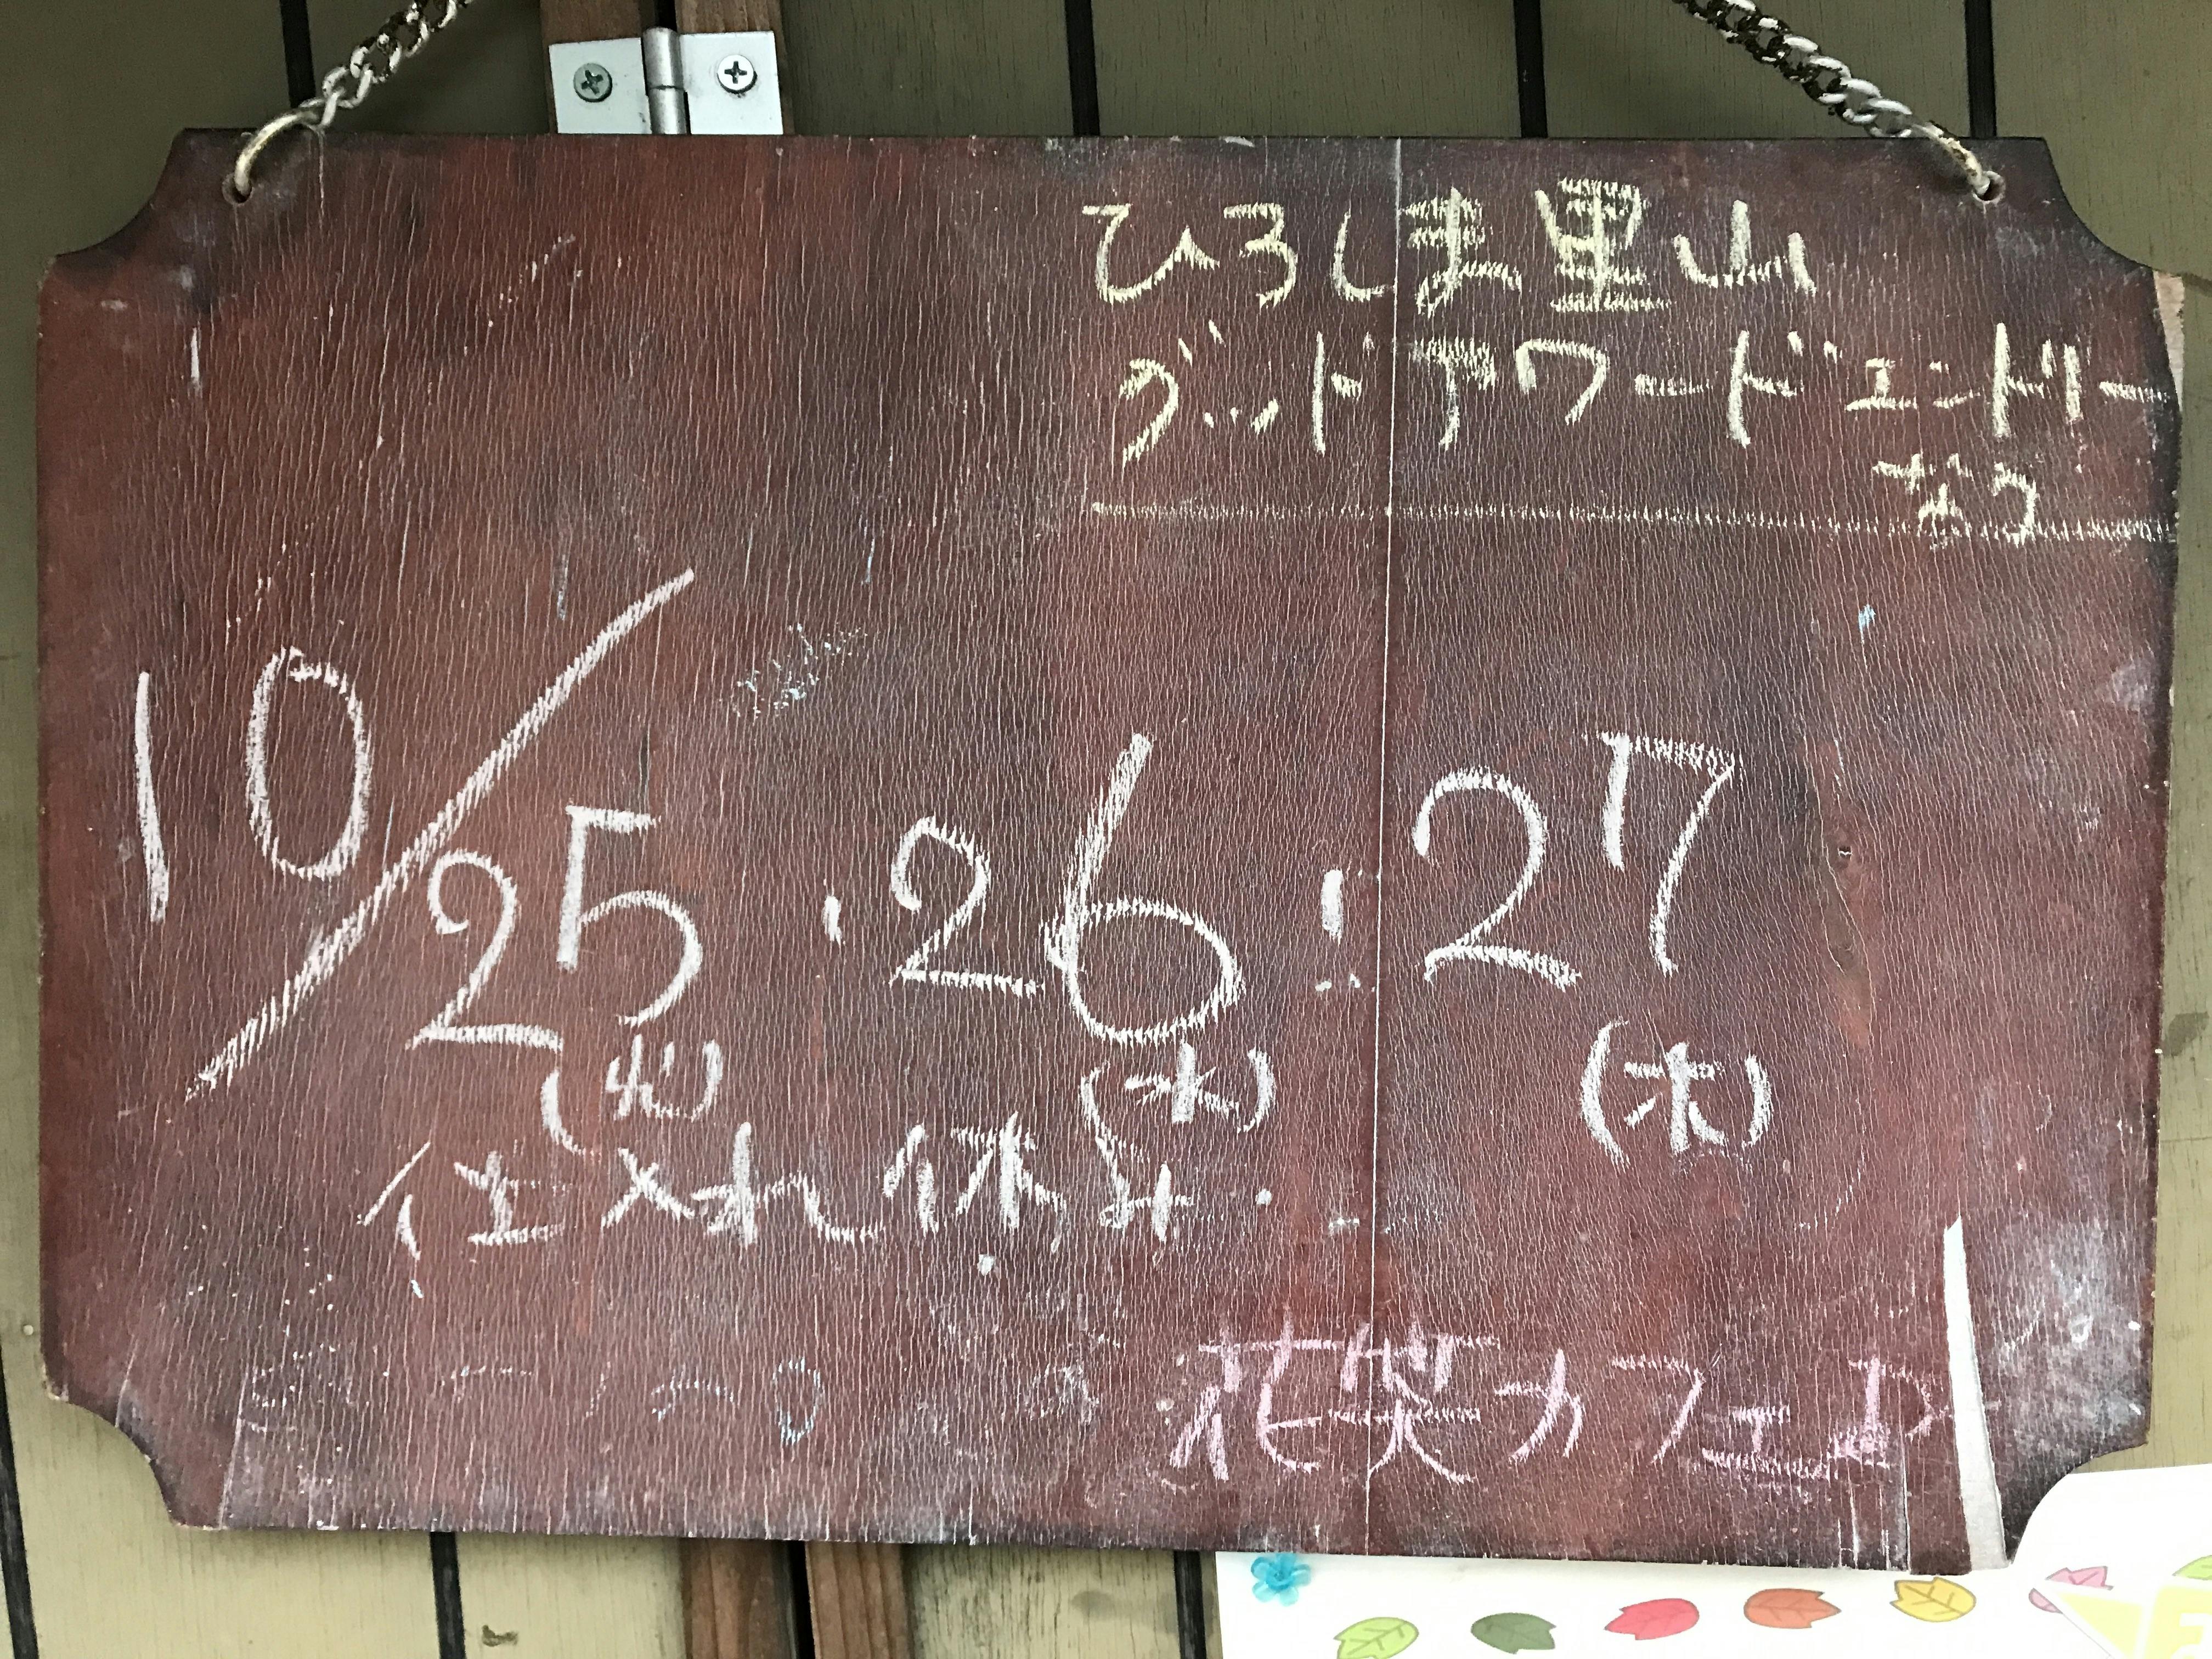 ひろしま里山
グッドアワードエントリー
なう
10/25・26・27
(火) (水) (木)
仕入れ休み
花笑カフェ